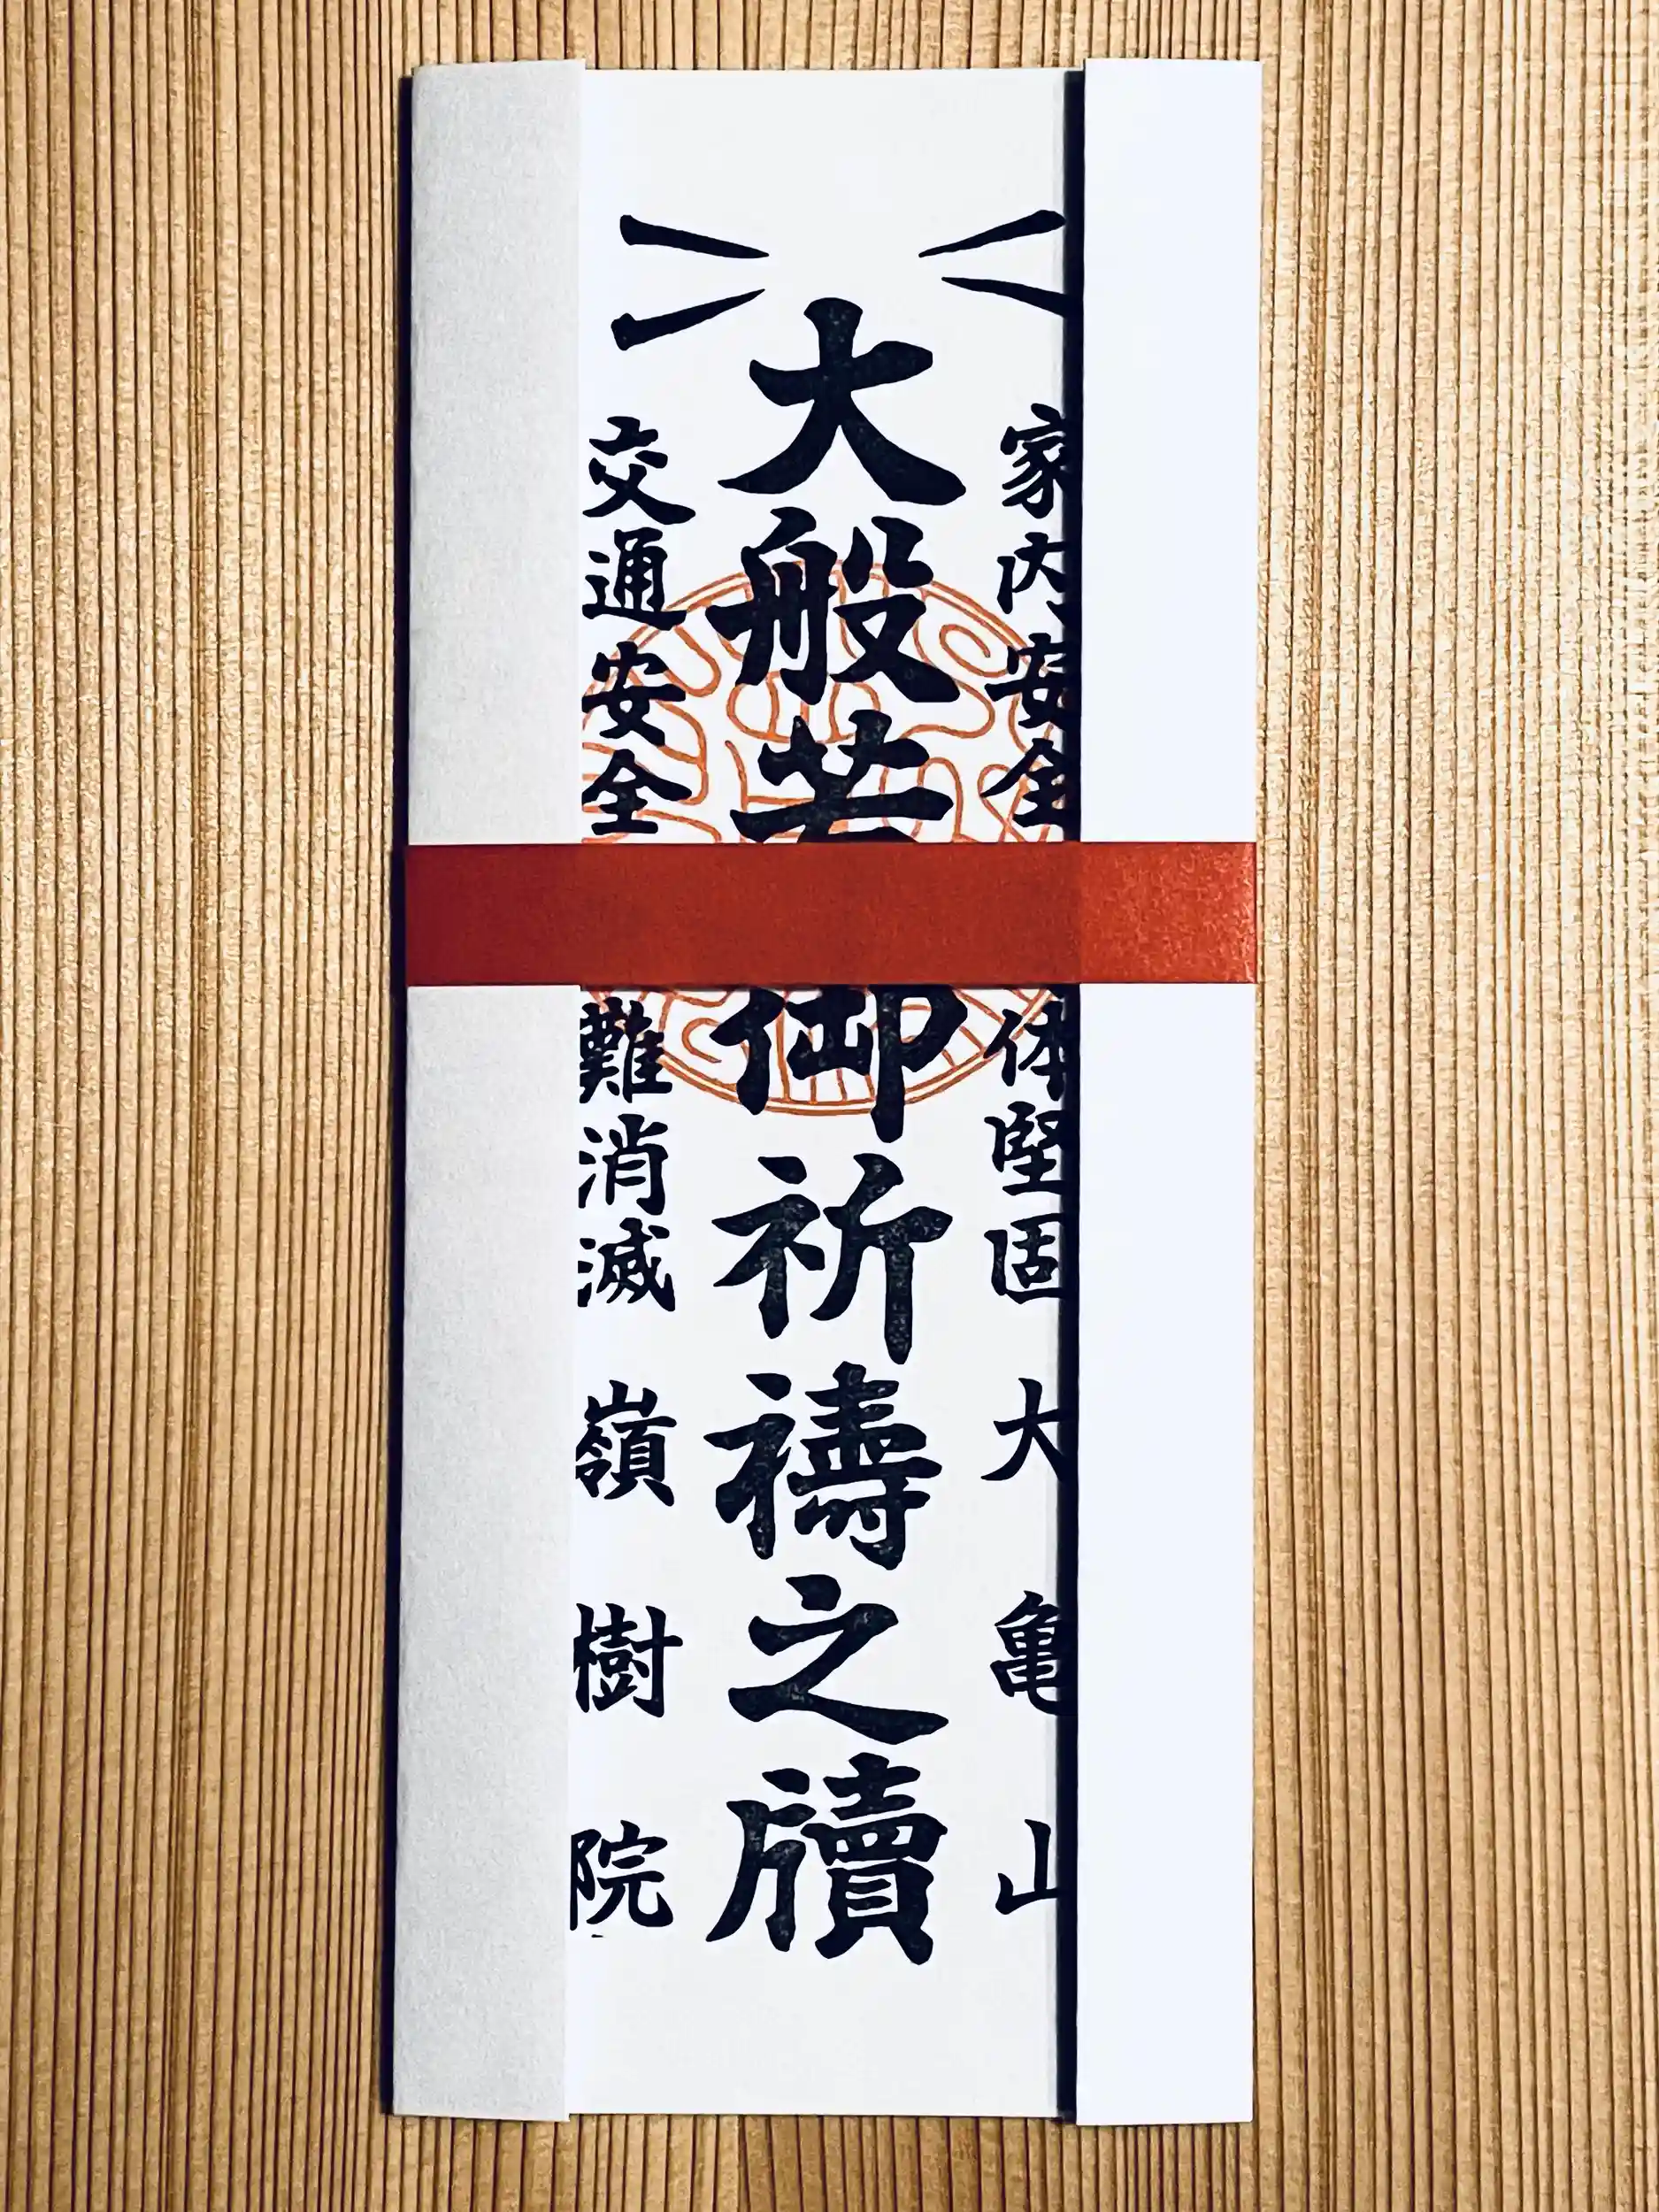 家内安全 体堅固 大亀山
大般若 御祈禱之牘
交通安全 難消滅 嶺樹院